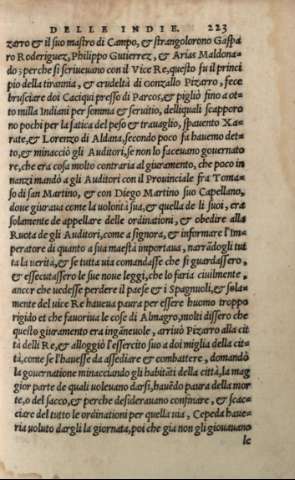 DELLE INDIE. 223
zarro & il suo mastro di Campo, & strangolorono Gaspa
ro Roderiguez, Philippo Gutierrez, & Arias Maldona-
do; perche si scriueuano con il Vice Re, questo fu il princi
pio della tirannia, & crudeltà di Gonzallo Pizarro, fece
brusciare doi Caciqui presso di Parcos, & pigliò fino a ot-
to milla Indiani per somma & seruitio, delliquali scapporo
no pochi per la fatica del peso & trauaglio, spauento Xa-
rate, & Lorenzo di Aldana, secondo poco fa hauemo det-
to, & minacciò gli Auditori, se non lo faceuano gouernato
re, che era cosa molto contraria al giuramento, che poco in
nanzi mandò a gli Auditori con il Prouinciale fra Toma-
so di san Martino, & con Diego Martino suo Capellano,
doue giuraua come la uolontà sua, & quella de li suoi, era
solamente de appellare delle ordinationi, & obedire alla
Ruota de gli Auditori, come a signora, & informare l'Im-
peratore di quanto a sua maestà importaua, narrādogli tut
ta la uerità, & se tutta uia comandasse che si guardassero,
& essecutassero le sue noue leggi, che lo faria ciuilmente,
ancor che uedesse perdere il paese & i Spagnuoli, & sola-
mente del uice Re haueua paura per essere huomo troppo
rigido et che fauoriua le cose di Almagro, molti dissero che
questo giuramento era ingāneuole, arriuò Pizarro alla cit
tà delli Re, & alloggiò l'essercito suo a doi miglia della cit-
tà, come se l'hauesse da assediare & combattere, domandò
la gouernatione minacciando gli habitāti della città, la mag
gior parte de quali uoleuano darsi, hauēdo paura della mor
te, o del sacco, & perche desiderauano confinare, & scac-
ciare del tutto le ordinationi per quella uia, Cepeda haue-
ria uoluto dargli la giornata, poi che gia non gli giouauano
le